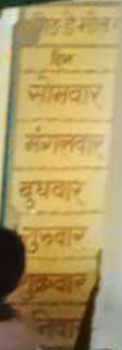 दिन
सोमवार
मंगलवार
बुधवार
गुरुवार
शुक्रवार